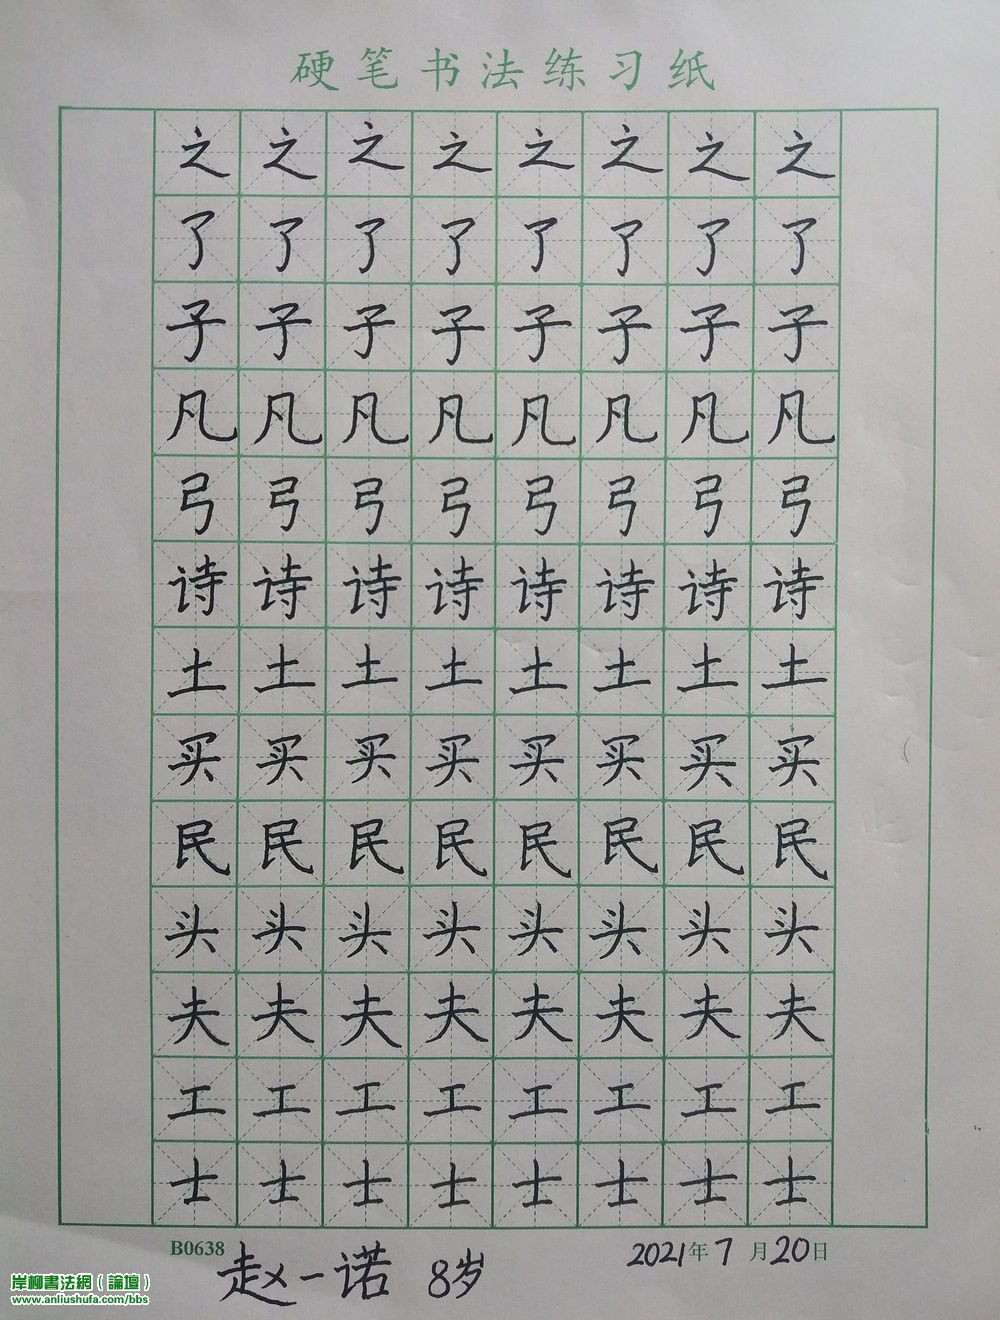 硬笔书法练习纸
之之之之之之之之
了了了了了了了了
子子子子子子子子
凡凡凡凡凡凡凡凡
弓弓弓弓弓弓弓弓
诗诗诗诗诗诗诗诗
土土土土土土土土
买买买买买买买买
民民民民民民民民
头头头头头头头头
夫夫夫夫夫夫夫夫
工工工工工工工工
士士士士士士士士
B0638 赵一诺 8岁 2021年7月20日
岸柳書法網（論壇）
www.anliushufa.com/bbs